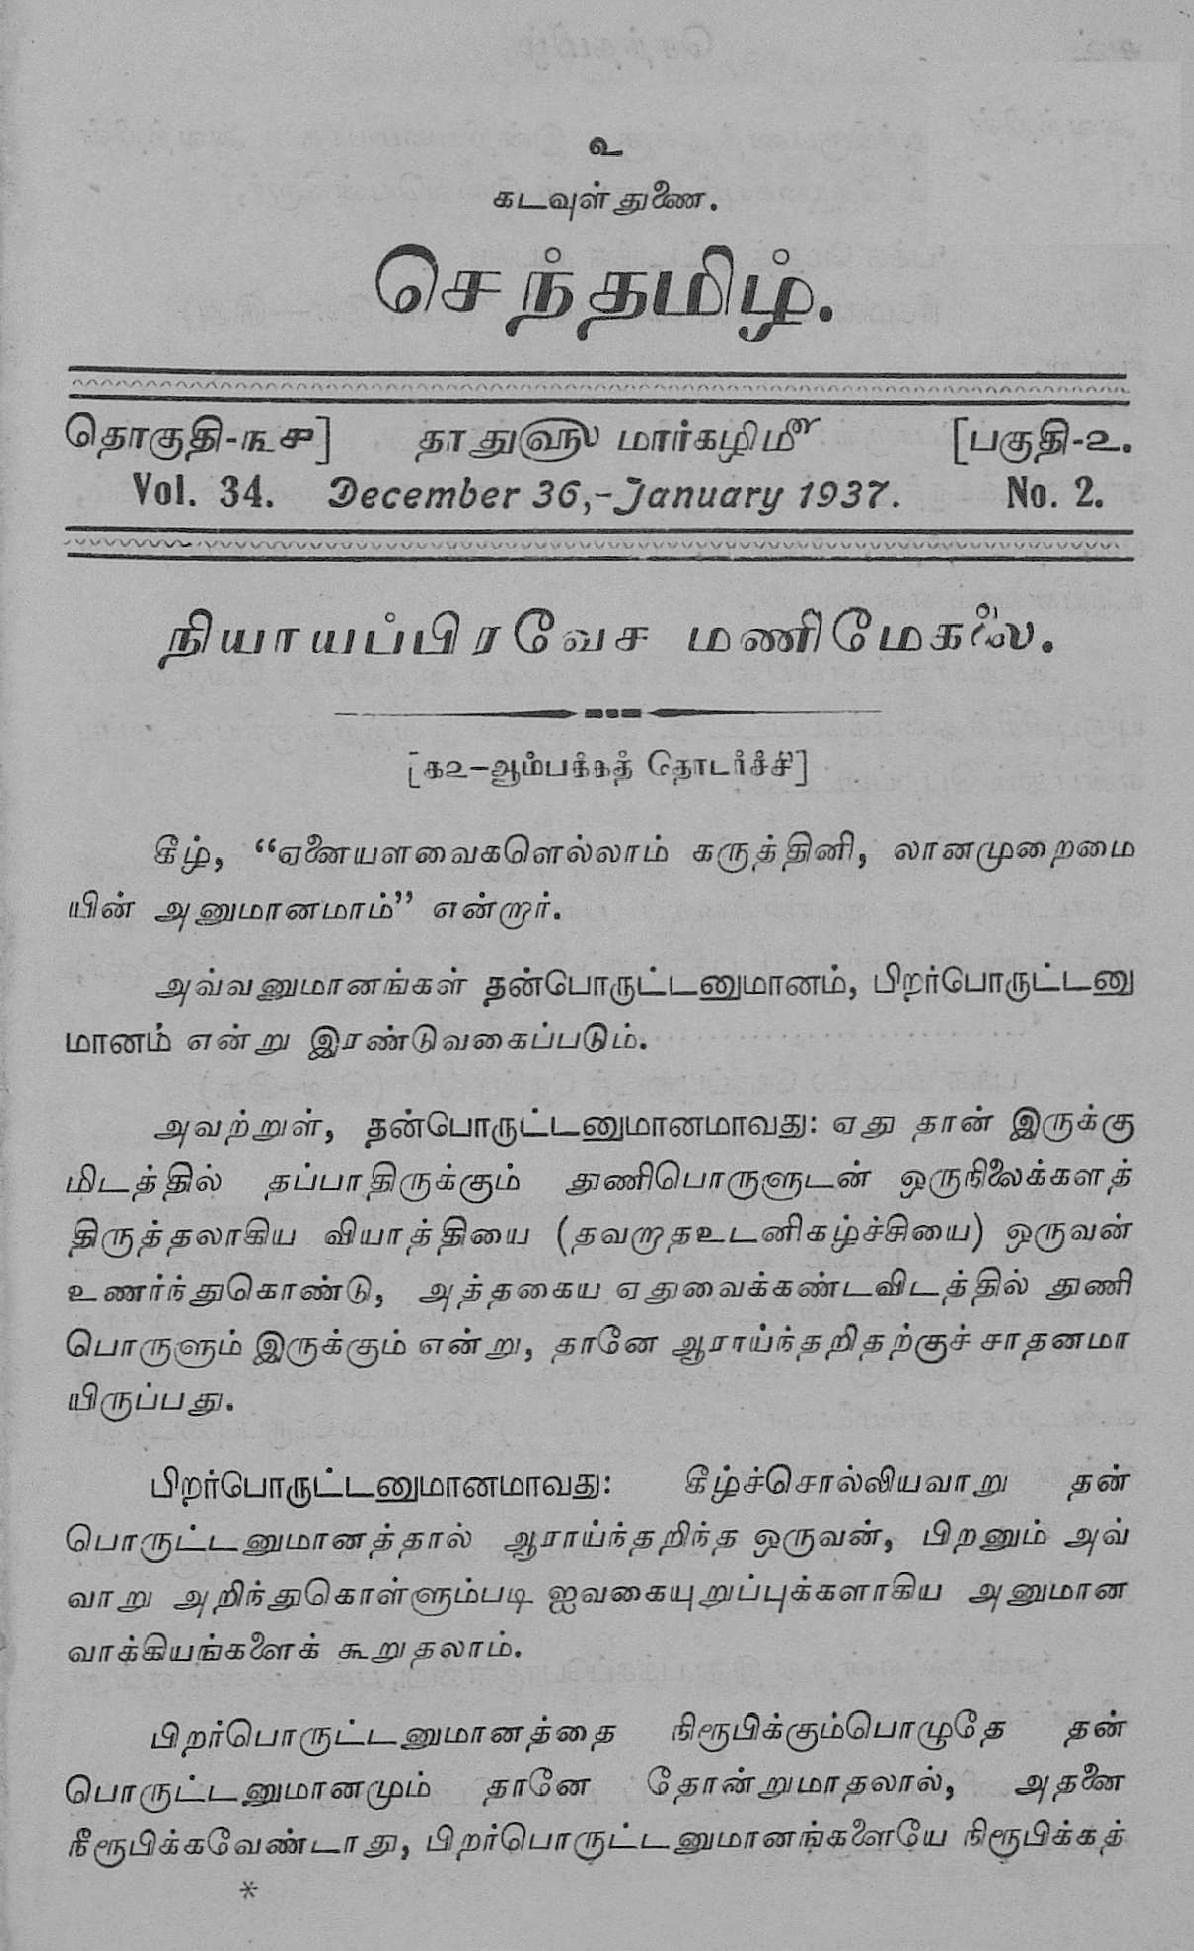 உ
கடவுள் துணை.
செந்தமிழ்.
தொகுதி-௩௪] தாது௵ மார்கழிமீ௴ [பகுதி-௨.
Vol. 34. December 36,-January 1937. No. 2.
நியாயப்பிரவேச மணிமேகலை.
[௧௨-ஆம்பக்கத் தொடர்ச்சி]
கீழ், “ஏனையளவைகளெல்லாம் கருத்தினி, லானமுறைமை
யின் அனுமானமாம்” என்றார்.
அவ்வனுமானங்கள் தன்பொருட்டனுமானம், பிறர்பொருட்டனு
மானம் என்று இரண்டுவகைப்படும்.
அவற்றுள், தன்பொருட்டனுமானமாவது: ஏது தான் இருக்கு
மிடத்தில் தப்பாதிருக்கும் துணிபொருளுடன் ஒருநிலைக்களத்
திருத்தலாகிய வியாத்தியை (தவறாதஉடனிகழ்ச்சியை) ஒருவன்
உணர்ந்துகொண்டு, அத்தகைய ஏதுவைக்கண்டவிடத்தில் துணி
பொருளும் இருக்கும் என்று, தானே ஆராய்ந்தறிதற்குச் சாதனமா
யிருப்பது.
பிறர்பொருட்டனுமானமாவது: கீழ்ச்சொல்லியவாறு தன்
பொருட்டனுமானத்தால் ஆராய்ந்தறிந்த ஒருவன், பிறனும் அவ்
வாறு அறிந்துகொள்ளும்படி ஐவகையுறுப்புக்களாகிய அனுமான
வாக்கியங்களைக் கூறுதலாம்.
பிறர்பொருட்டனுமானத்தை நிரூபிக்கும்பொழுதே தன்
பொருட்டனுமானமும் தானே தோன்றுமாதலால், அதனை
நீரூபிக்கவேண்டாது, பிறர்பொருட்டனுமானங்களையே நிரூபிக்கத்
*